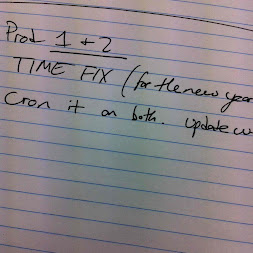 Prod 1 + 2
TIME FIX (for the new year
Cron it on both. Update w